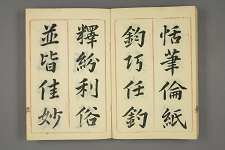 恬筆倫紙
鈞巧任釣
釋紛利俗
並皆佳妙